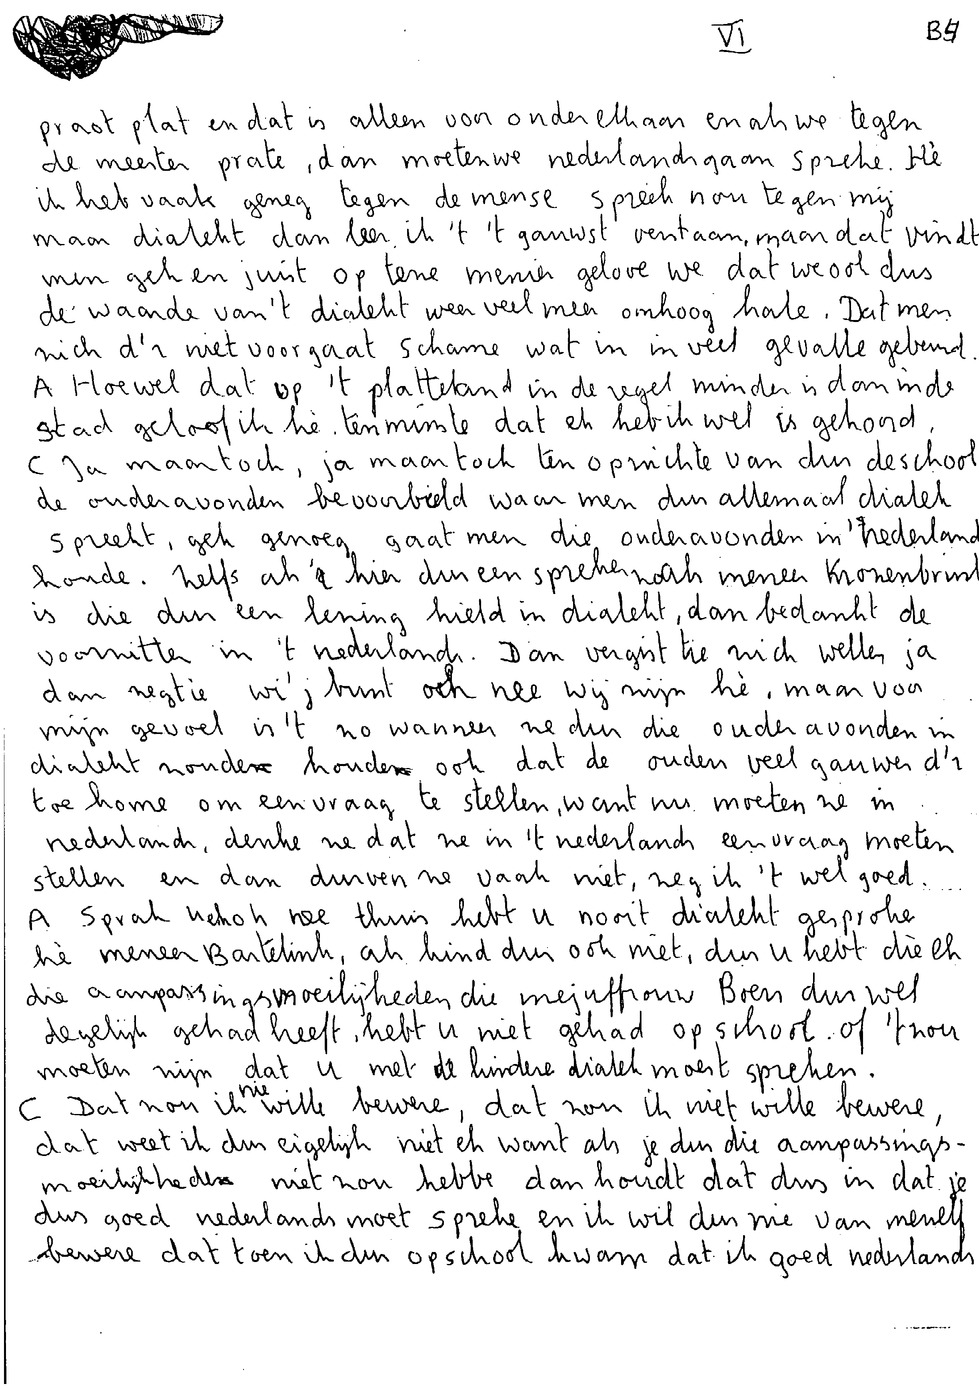 VI B4
praot plat en dat is alleen voor onder elkaar en ak we tegen
de meester prate, dan moeten we nederlands gaan spreke. Hè
ik heb vaak geneg tegen de mense spreek nou tegen mij
maar dialekt dan leer ik 't 't gauwst verstaan, maar dat vindt
men gek en juist op tene manier gelove we dat we ook dus
de waarde van 't dialekt weer veel meer omhoog hale. Dat men
zich d'r niet voor gaat schame wat in in veel gevalle gebeurd.
A Hoewel dat op 't platteland in de regel minder is dan in de
stad geloof ik hè. tenminste dat eh heb ik wel is gehoord.
C Ja maar toch, ja maar toch ten opzichte van dus de school
de ouderavonden bevoorbeeld waar men dus allemaal dialek
spreekt, gek genoeg gaat men die ouderavonden in 't nederland
houde. Zelfs als 'r hier dus een spreker zoals meneer Kronenbrink
is die dus een lezing hield in dialekt, dan bedankt de
voorzitter in 't nederlands. Dan vergist tie zich weller ja
dan zegtie wi'j bunt och nee wij zijn hè, maar voor
mijn gevoel is 't zo wanneer ze dus die ouderavonden in
dialekt zouden houden ook dat de ouders veel gauwer d'r
toe kome om een vraag te stellen, want nu moeten ze in
nederlands, denke ze dat ze in 't nederlands een vraag moeten
stellen en dan durven ze vaak niet, zeg ik 't wel goed.
A Sprak u ook nee thuis hebt u nooit dialekt gesproke
hè meneer Bartelink, als kind dus ook niet, dus u hebt die eh
die aanpassingsmoeilijkheden die mejuffrouw Boers dus wel
degelijk gehad heeft, hebt u niet gehad op school. of 't zou
moeten zijn dat u met de kindere dialek moest spreken.
C Dat zou ik nie wille bewere, dat zou ik niet wille bewere,
dat weet ik dus eigelijk niet eh want als je dus die aanpassings-
moeilijkheden niet zou hebbe dan houdt dat dus in dat je
dus goed nederlands moet spreke en ik wil dus nie van mezelf
bewere dat toen ik dus op school kwam dat ik goed nederlands